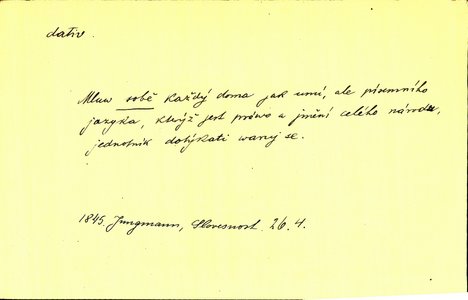 dativ.
Mluw sobě každý doma jak umí, ale písemního
jazyka, kterýž jest práwo a jmění celého národu,
jednotník dotýkati waruj se.
1845. Jungmann, Slovesnost. 26.4.